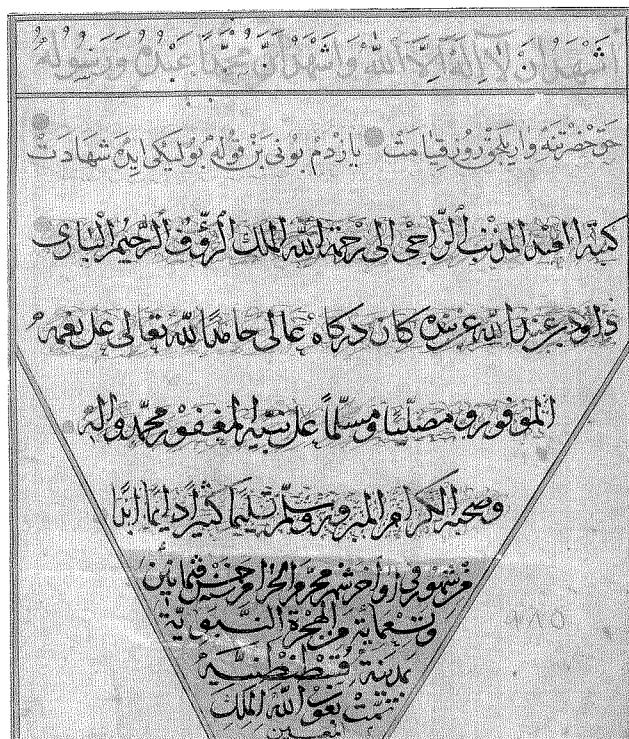 اشهد ان لا اله الا الله واشهد ان محمدا عبده ورسوله
حق حضرتنه واريلجق روز قيامت يازدم بونى بن قوله بوليكى ايده شهادت
كتبه العبد المذنب الراجى الى رحمة الله الملك الرؤف الرحيم البارى
داود بن عبد الله عن بندكان دركاه عالى حامدا لله تعالى على نعمه
الموفور و مصليا ومسلما على نبيه المغفور محمد واله
وصحبه الكرام المبرور وسلم تسليما كثيرا دايما ابدا
من شهور فى اواخر شهر محرم الحرام من خمس ثمانين
وتسعماية من الهجرة النبوية
بمدينة قسطنطنيه
تمت بعون الله الملك
معين